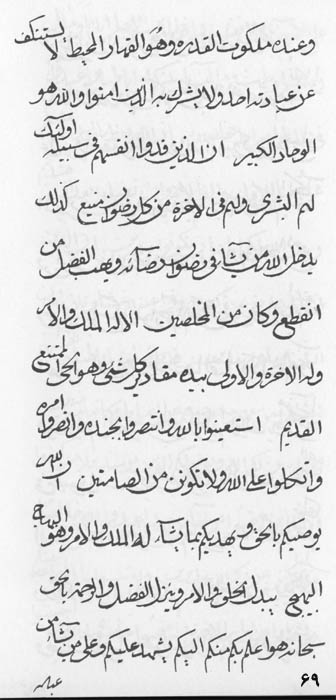 وعنده ملكوت القدرة وهو القهار المحيط لا يستنكف
عن عبادته احد ولا يشرك به الذين امنوا والله هو
الواحد الكبير ان الذين فدوا انفسهم فى سبيله اولئك
لهم البشرى ولهم فى الاخرة من كل رضوان منيع كذلك
يدخل الله من يشآء فى رضوان رضآئه ويهب الفضل من
انقطع وكان من المخلصين الا له الملك والامر
وله الاخرة والاولى بيده مقادير كل شئ وهو الحى الممتنع
القديم استعينوا بالله وانتصروا بجنده وانصروا امره
واتكلوا على الله ولا تكونن من الصامتين ان الله
يوصيكم بالحق ويهديكم بما يشآء له الملك والامر وهو
البهيج بيده الخلق والامر وينزل الفضل والرحمة بالحق
سبحانه هو اعلم بكم منكم اليكم يشهد عليكم وعلى من يشآء من
٦٩